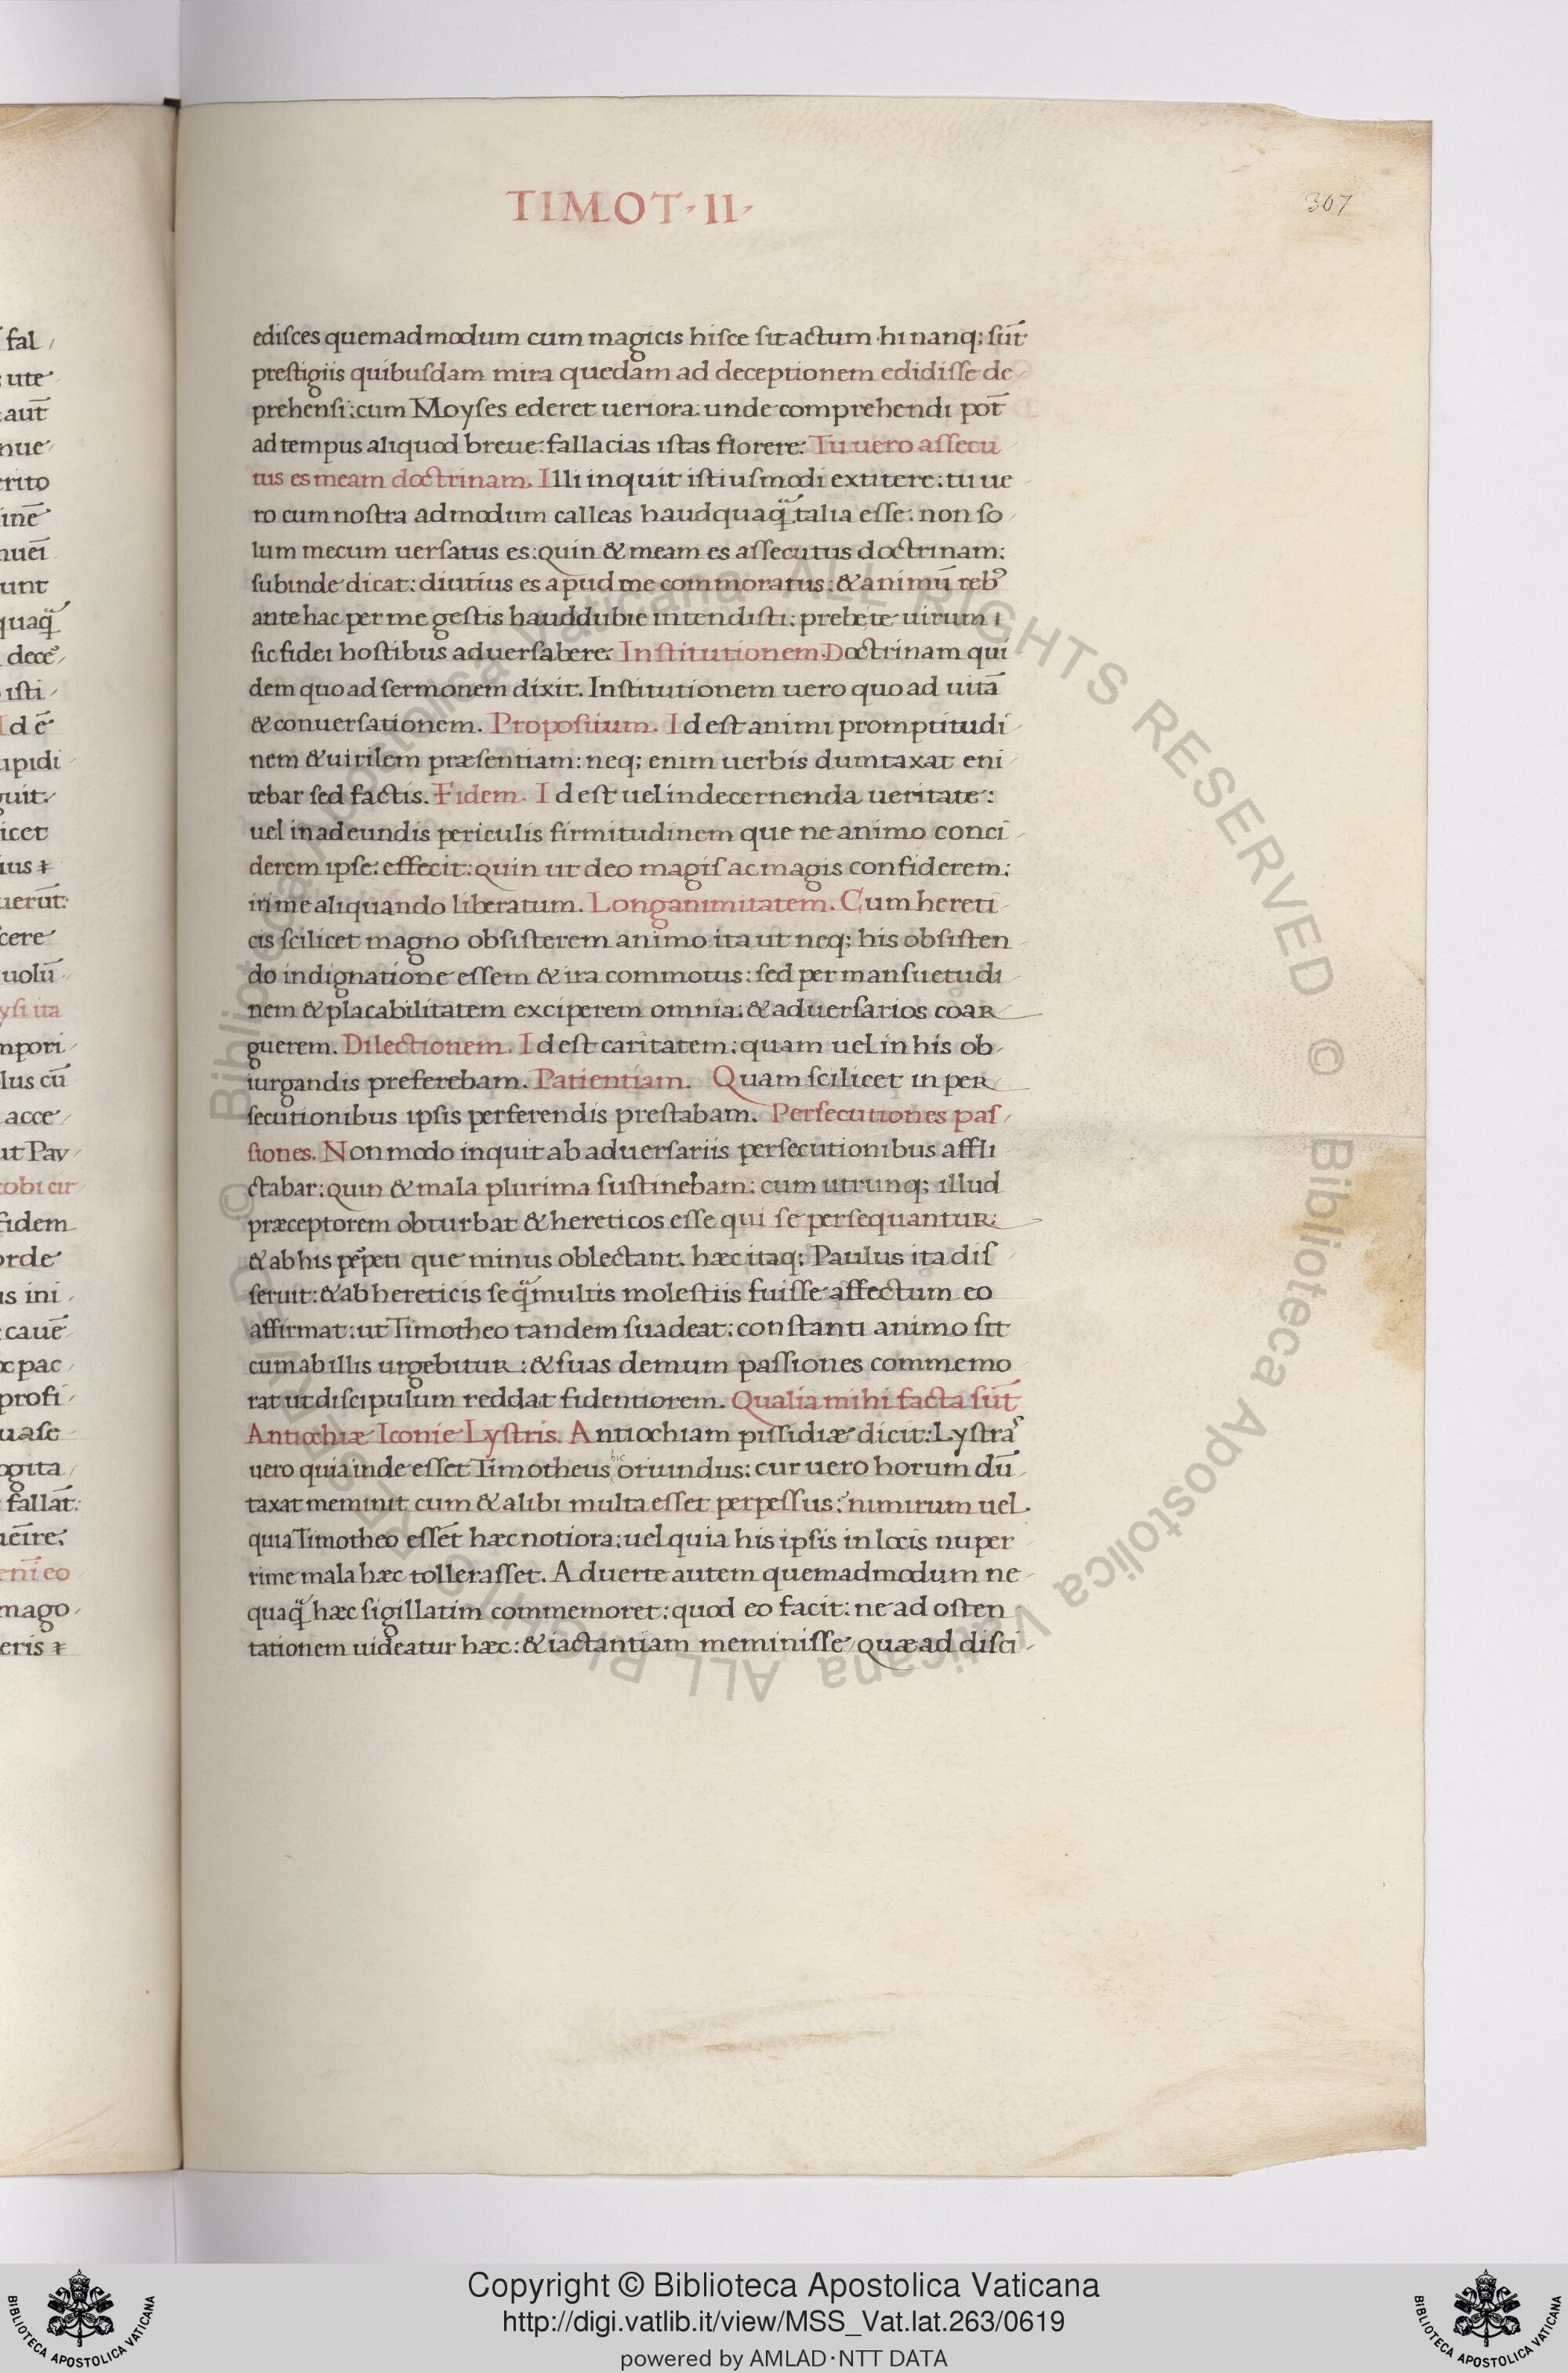 TIMOT · II ·
307
edisces quemadmodum cum magicis hisce sit actum · hi nanq; sūt
prestigiis quibusdam mira quedam ad deceptionem edidisse de
prehensi: cum Moyses ederet ueriora: unde comprehendi pot̄
ad tempus aliquod breue: fallacias istas florere: Tu uero assecu
tus es meam doctrinam. Illi inquit istiusmodi extitere: tu ue
ro cum nostra admodum calleas haudquaq̈ talia esse: non so
lum mecum uersatus es: quin & meam es assecutus doctrinam:
subinde dicat: diutius es apud me commoratus: & animū reb⁹
ante hac per me gestis hauddubie intendisti: prebe te uirum ⁊
sic fidei hostibus aduersabere: Institutionem. Doctrinam qui
dem quo ad sermonem dixit. Institutionem uero quo ad uitā
& conuersationem. Propositum. Id est animi promptitudi
nem & uirilem præsentiam: neq; enim uerbis dumtaxat eni
tebar sed factis. Fidem. Id est uel in decernenda ueritate:
uel in adeundis periculis firmitudinem que ne animo conci
derem ipse: effecit: quin ut deo magis ac magis confiderem:
iri me aliquando liberatum. Longanimitatem. Cum hereti
cis scilicet magno obsisterem animo ita ut neq; his obsisten
do indignatione essem & ira commotus: sed per mansuetudi
nem & placabilitatem exciperem omnia: & aduersarios coar
guerem. Dilectionem. Id est caritatem: quam uel in his ob
iurgandis preferebam. Patientiam. Quam scilicet in per
secutionibus ipsis perferendis prestabam. Persecutiones pas
siones. Non modo inquit ab aduersariis persecutionibus affli
ctabar: quin & mala plurima sustinebam: cum utrunq; illud
præceptorem obturbat & hereticos esse qui se persequantur:
& ab his ꝑpeti que minus oblectant. hæc itaq; Paulus ita dis
seruit: & ab hereticis seq̈ multis molestiis fuisse affectum eo
affirmat: ut Timotheo tandem suadeat: constanti animo sit
cum ab illis urgebitur: & suas demum passiones commemo
rat ut discipulum reddat fidentiorem. Qualia mihi facta sūt
Antiochiæ Iconie Lystris. Antiochiam pissidiæ dicit: Lystrā
uero quia inde esset Timotheus oriundus: cur uero horum dū
taxat meminit cum & alibi multa esset perpessus? nimirum uel
quia Timotheo essēt hæc notiora: uel quia his ipsis in locis nuper
rime mala hæc tollerasset. Aduerte autem quemadmodum ne
quaq̈ hæc sigillatim commemoret: quod eo facit: ne ad osten
tationem uideatur hæc: & iactantiam meminisse quæ ad disci
fal
ute
aut̄
nue
erito
inē
nuēi
unt
quaq̈
decē
isti
Id ē
upidi
guit.
icet
ius ⁊
uerūt:
cere
uolū
ysi ita
mpori
lus cū
acce
ut Pau
cobi cir
fidem
orde
us ini
cauē
pac
profi
uase
ogita
fallāt:
uēire:
enī eo
mago
eris ⁊
© Biblioteca Apostolica Vaticana ALL RIGHTS RESERVED © Biblioteca Apostolica Vaticana ALL RIGHTS RESERVED
BIBLIOTECA APOSTOLICA VATICANA
Copyright © Biblioteca Apostolica Vaticana
http://digi.vatlib.it/view/MSS_Vat.lat.263/0619
powered by AMLAD·NTT DATA
BIBLIOTECA APOSTOLICA VATICANA